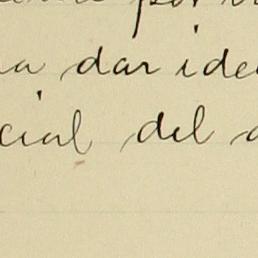 por
a dar ide
cial del a